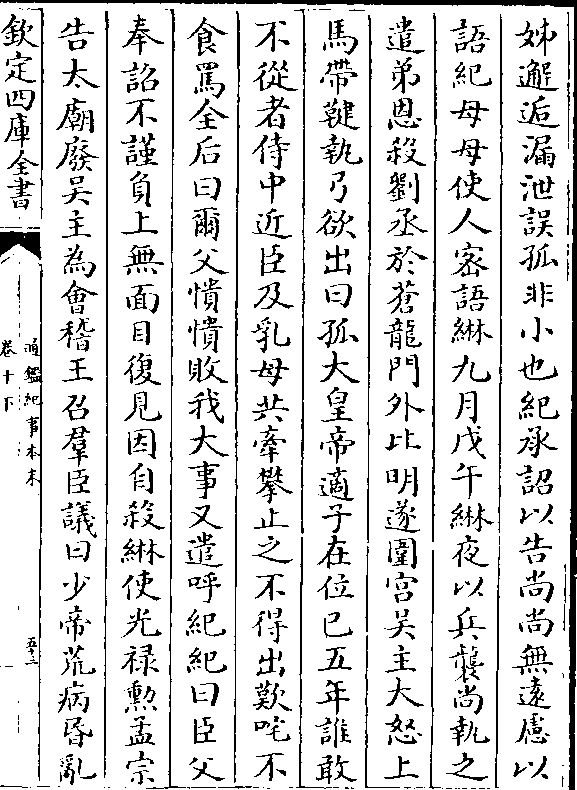 姊邂逅漏泄誤孤非小也紀承詔以告尚尚無遠慮以
語紀母母使人密語綝九月戊午綝夜以兵襲尚執之
遣弟恩殺劉丞於蒼龍門外比明遂圍宮吴主大怒上
馬帶鞬執弓欲出曰孤大皇帝適子在位已五年誰敢
不從者侍中近臣及乳母共牽攀止之不得出歎咤不
食罵全后曰爾父憒憒敗我大事又遣呼紀紀曰臣父
奉詔不謹負上無面目復見因自殺綝使光禄勲孟宗
告太廟廢吴主為會稽王召羣臣議曰少帝荒病昏亂
欽定四庫全書
通鑑紀事本末
卷十下
五十三